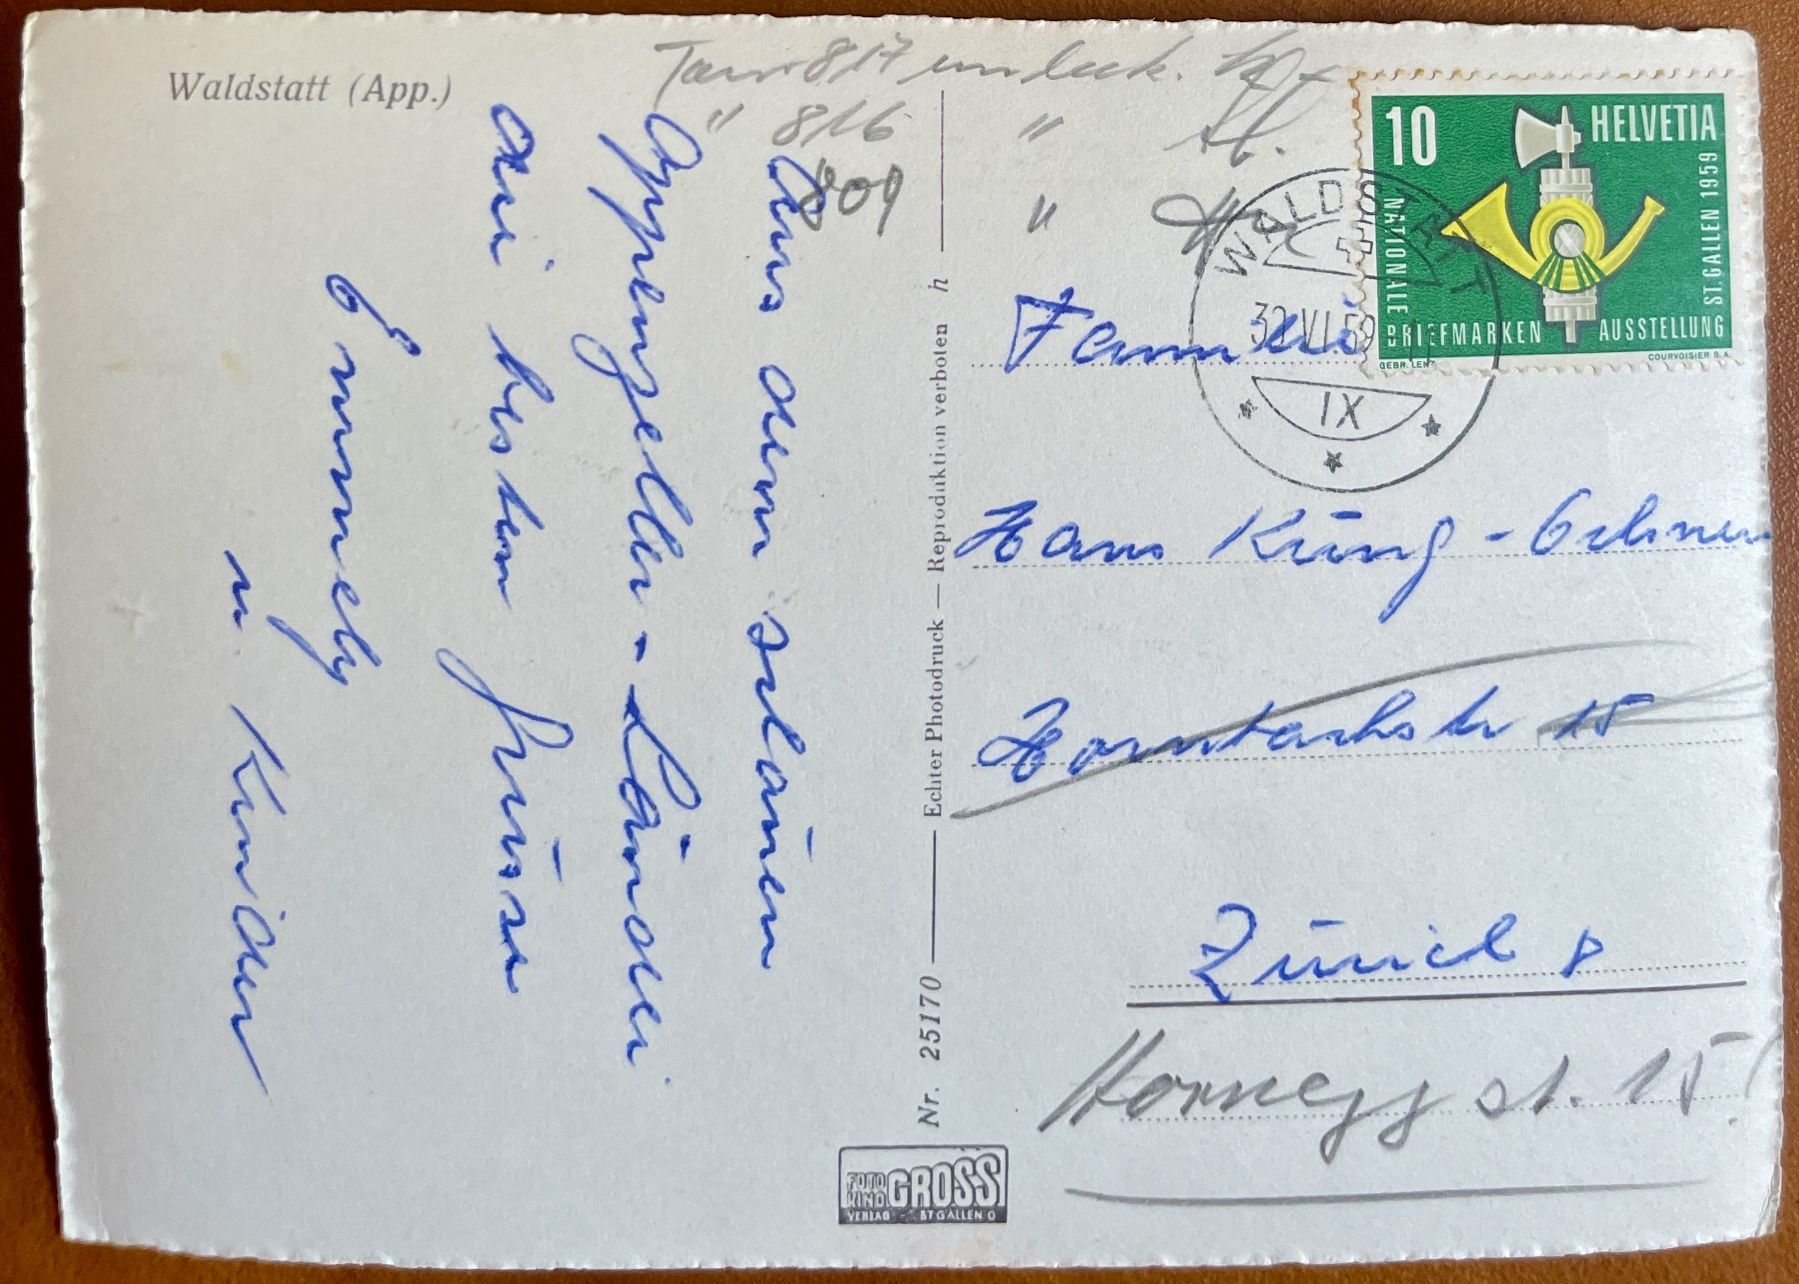 Waldstatt (App.)
Tour 817 unbek.
" 816 "
809 "
Aus dem schönen
Appenzeller-Ländli
die besten Grüsse
Emmely
u Kinder
Nr. 25170 — Echter Photodruck — Reproduktion verboten h
FOTO KINO GROSS
VERLAG ST GALLEN O
10 HELVETIA
NATIONALE BRIEFMARKEN AUSSTELLUNG ST. GALLEN 1959
GEBR. LENZ COURVOISIER S.A.
WALDSTATT
VI.59
IX
Familie
Hans Küng-
15
Zürich 8
Hornegg st. 15!